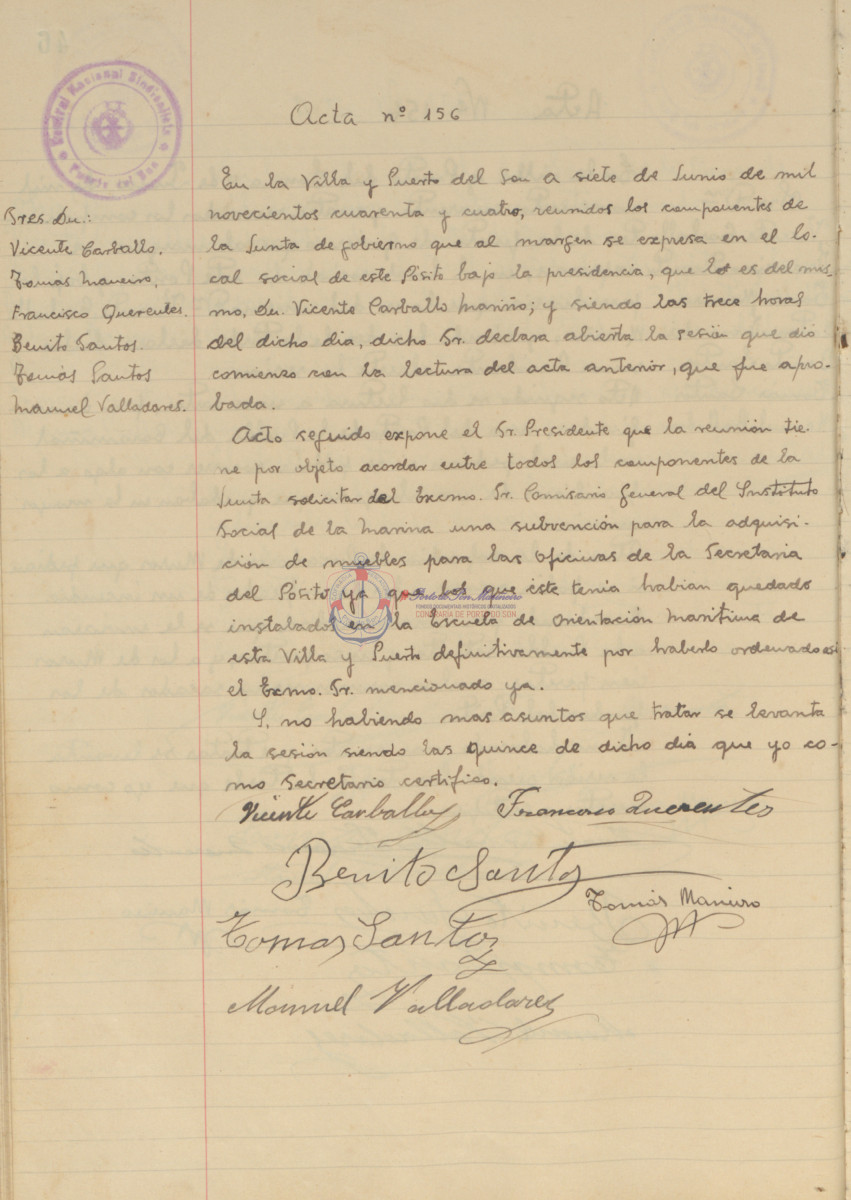 Central Nacional Sindicalista
Puerto del Son
Acta nº 156
Sres. Dn.:
Vicente Carballo.
Tomás Maneiro.
Francisco Querentes.
Benito Santos.
Tomás Santos
Manuel Valladares.
En la Villa y Puerto del Son a siete de Junio de mil
novecientos cuarenta y cuatro, reunidos los componentes de
la Junta de gobierno que al margen se expresa en el lo-
cal social de este Pósito bajo la presidencia, que lo es del mis-
mo, Dn. Vicente Carballo Mariño; y siendo las trece horas
del dicho dia, dicho Sr. declara abierta la sesión que dió
comienzo con la lectura del acta anterior, que fue apro-
bada.
Acto seguido expone el Sr. Presidente que la reunión tie-
ne por objeto acordar entre todos los componentes de la
Junta solicitar del Excmo. Sr. Comisario General del Instituto
Social de la Marina una subvención para la adquisi-
ción de muebles para las oficinas de la Secretaria
del Pósito ya que los que este tenía habian quedado
instalados en la Escuela de Orientación Maritima de
esta Villa y Puerto definitivamente por haberlo ordenado asi
el Excmo. Sr. mencionado ya.
Y, no habiendo mas asuntos que tratar se levanta
la sesión siendo las quince de dicho dia que yo co-
mo Secretario certifico.
Vicente Carballo Francisco Querentes
Benito Santos
Tomás Maneiro
Tomas Santos
Manuel Valladares
Porto do Son Mariñeiro
FONDOS DOCUMENTAIS HISTÓRICOS DIXITALIZADOS
CONFRARÍA DE PORTO DO SON